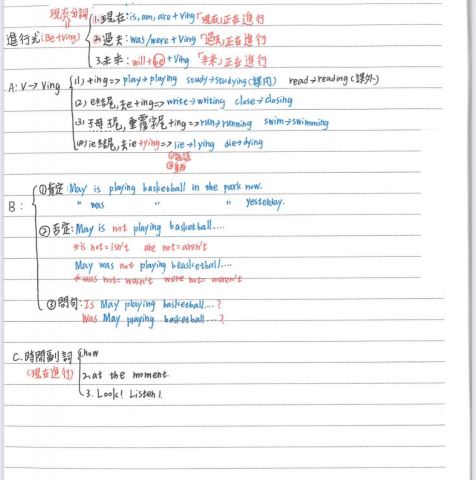 現在分詞
"
進行式(Be+Ving)
1.現在:is, am, are+Ving「現在」正在進行
2.過去:was/were+Ving「過去」正在進行
3.未來:will+be+Ving「未來」正在進行
A:V→Ving
(1)+ing=>play→playing study→studying(課內) read→reading(課外)
(2)e結尾,去e+ing=>write→writing close→closing
(3)子母子尾,重覆字尾+ing=>run→running swim→swimming
(4)ie結尾,去ie+ying=>lie→lying die→dying
①說謊
②躺
B:
①肯定:May is playing basketball in the park now.
" was " " yesterday.
②否定:May is not playing basketball....
*is not=isn't are not=aren't
May was not playing beasketball....
*was not=wasn't were not=weren't
③問句:Is May playing basketball....?
Was May playing basketball....?
C.時間副詞
(現在進行)
1.now
2.at the moment.
3.Look! Listen!